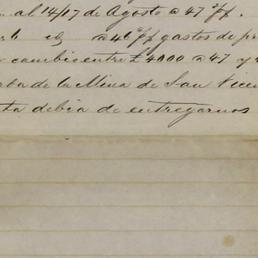 al 14/17 de Agosto a 47
a 46 gastos de pr
cambio entre £4000 a 47 y
de la Mina de San Vicen
ta debia de entregarnos